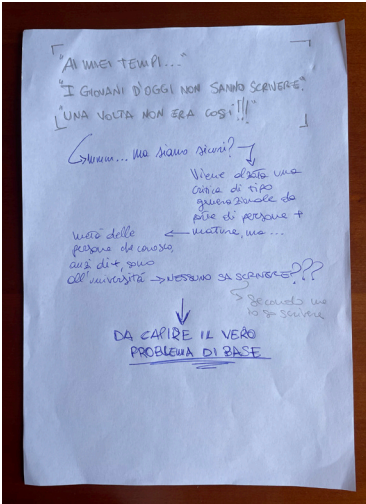 "AI MIEI TEMPI..."
"I GIOVANI D'OGGI NON SANNO SCRIVERE."
"UNA VOLTA NON ERA COSÌ!!!"
mmm... ma siamo sicuri?
Viene alzata una
critica di tipo
generazionale da
parte di persone +
mature, ma...
metà delle
persone che conosco,
anzi di +, sono
all'università → NESSUNO SA SCRIVERE???
secondo me
lo so scrivere
DA CAPIRE IL VERO
PROBLEMA DI BASE